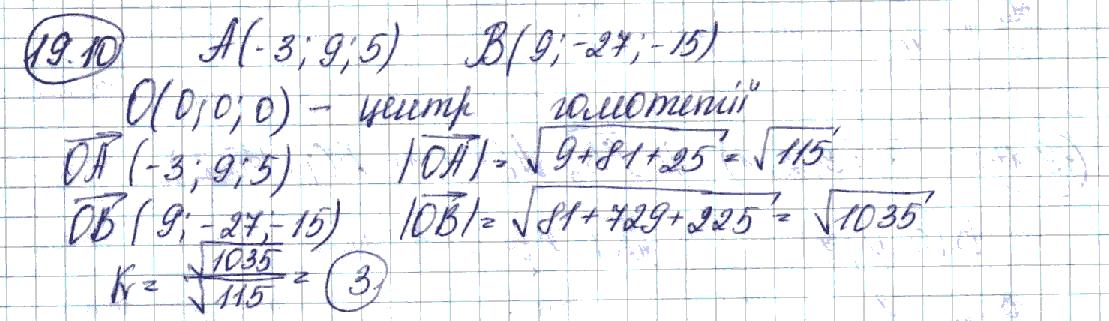 19.10 A(-3; 9; 5) B(9; -27; -15)
O(0; 0; 0) - центр гомотетії
OA (-3; 9; 5) |OA| = √9+81+25 = √115
OB (9; -27; -15) |OB| = √81+729+225 = √1035
K = √1035/√115 = 3